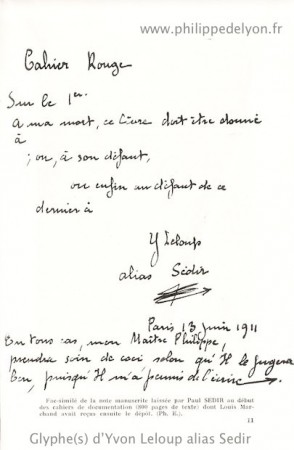 www.philippedelyon.fr
Cahier Rouge
Sur le 1er.
A ma mort, ce livre doit être donné
à
; ou, à son défaut,
ou enfin au défaut de ce
dernier à
Y Leloup
alias Sédir
Paris 13 juin 1911
En tous cas, mon Maître Philippe,
prendra soin de ceci selon qu'Il le jugera
bon, puisqu'Il m'a permis de l'écrire
Fac-similé de la note manuscrite laissée par Paul SEDIR au début
des cahiers de documentation (800 pages de texte) dont Louis Mar-
chand avait reçu ensuite le dépôt. (Ph. E.).
11
Glyphe(s) d'Yvon Leloup alias Sedir